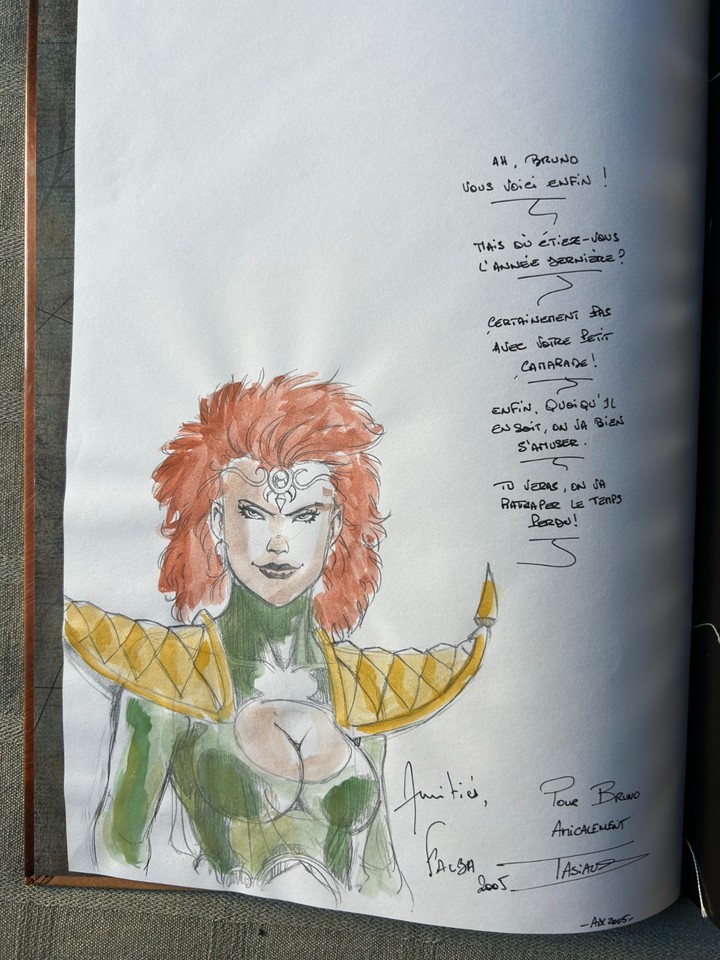 AH, BRUNO
VOUS VOICI ENFIN !
MAIS OÙ ÉTIEZ-VOUS
L'ANNÉE DERNIÈRE ?
CERTAINEMENT PAS
AVEC VOTRE PETIT
CAMARADE !
ENFIN, QUOIQU'IL
EN SOIT, ON VA BIEN
S'AMUSER.
TU VERAS, ON VA
RATRAPER LE TEMPS
PERDU !
Amitiés,
2005
POUR BRUNO
AMICALEMENT
TASIAUX
- AIX 2005 -